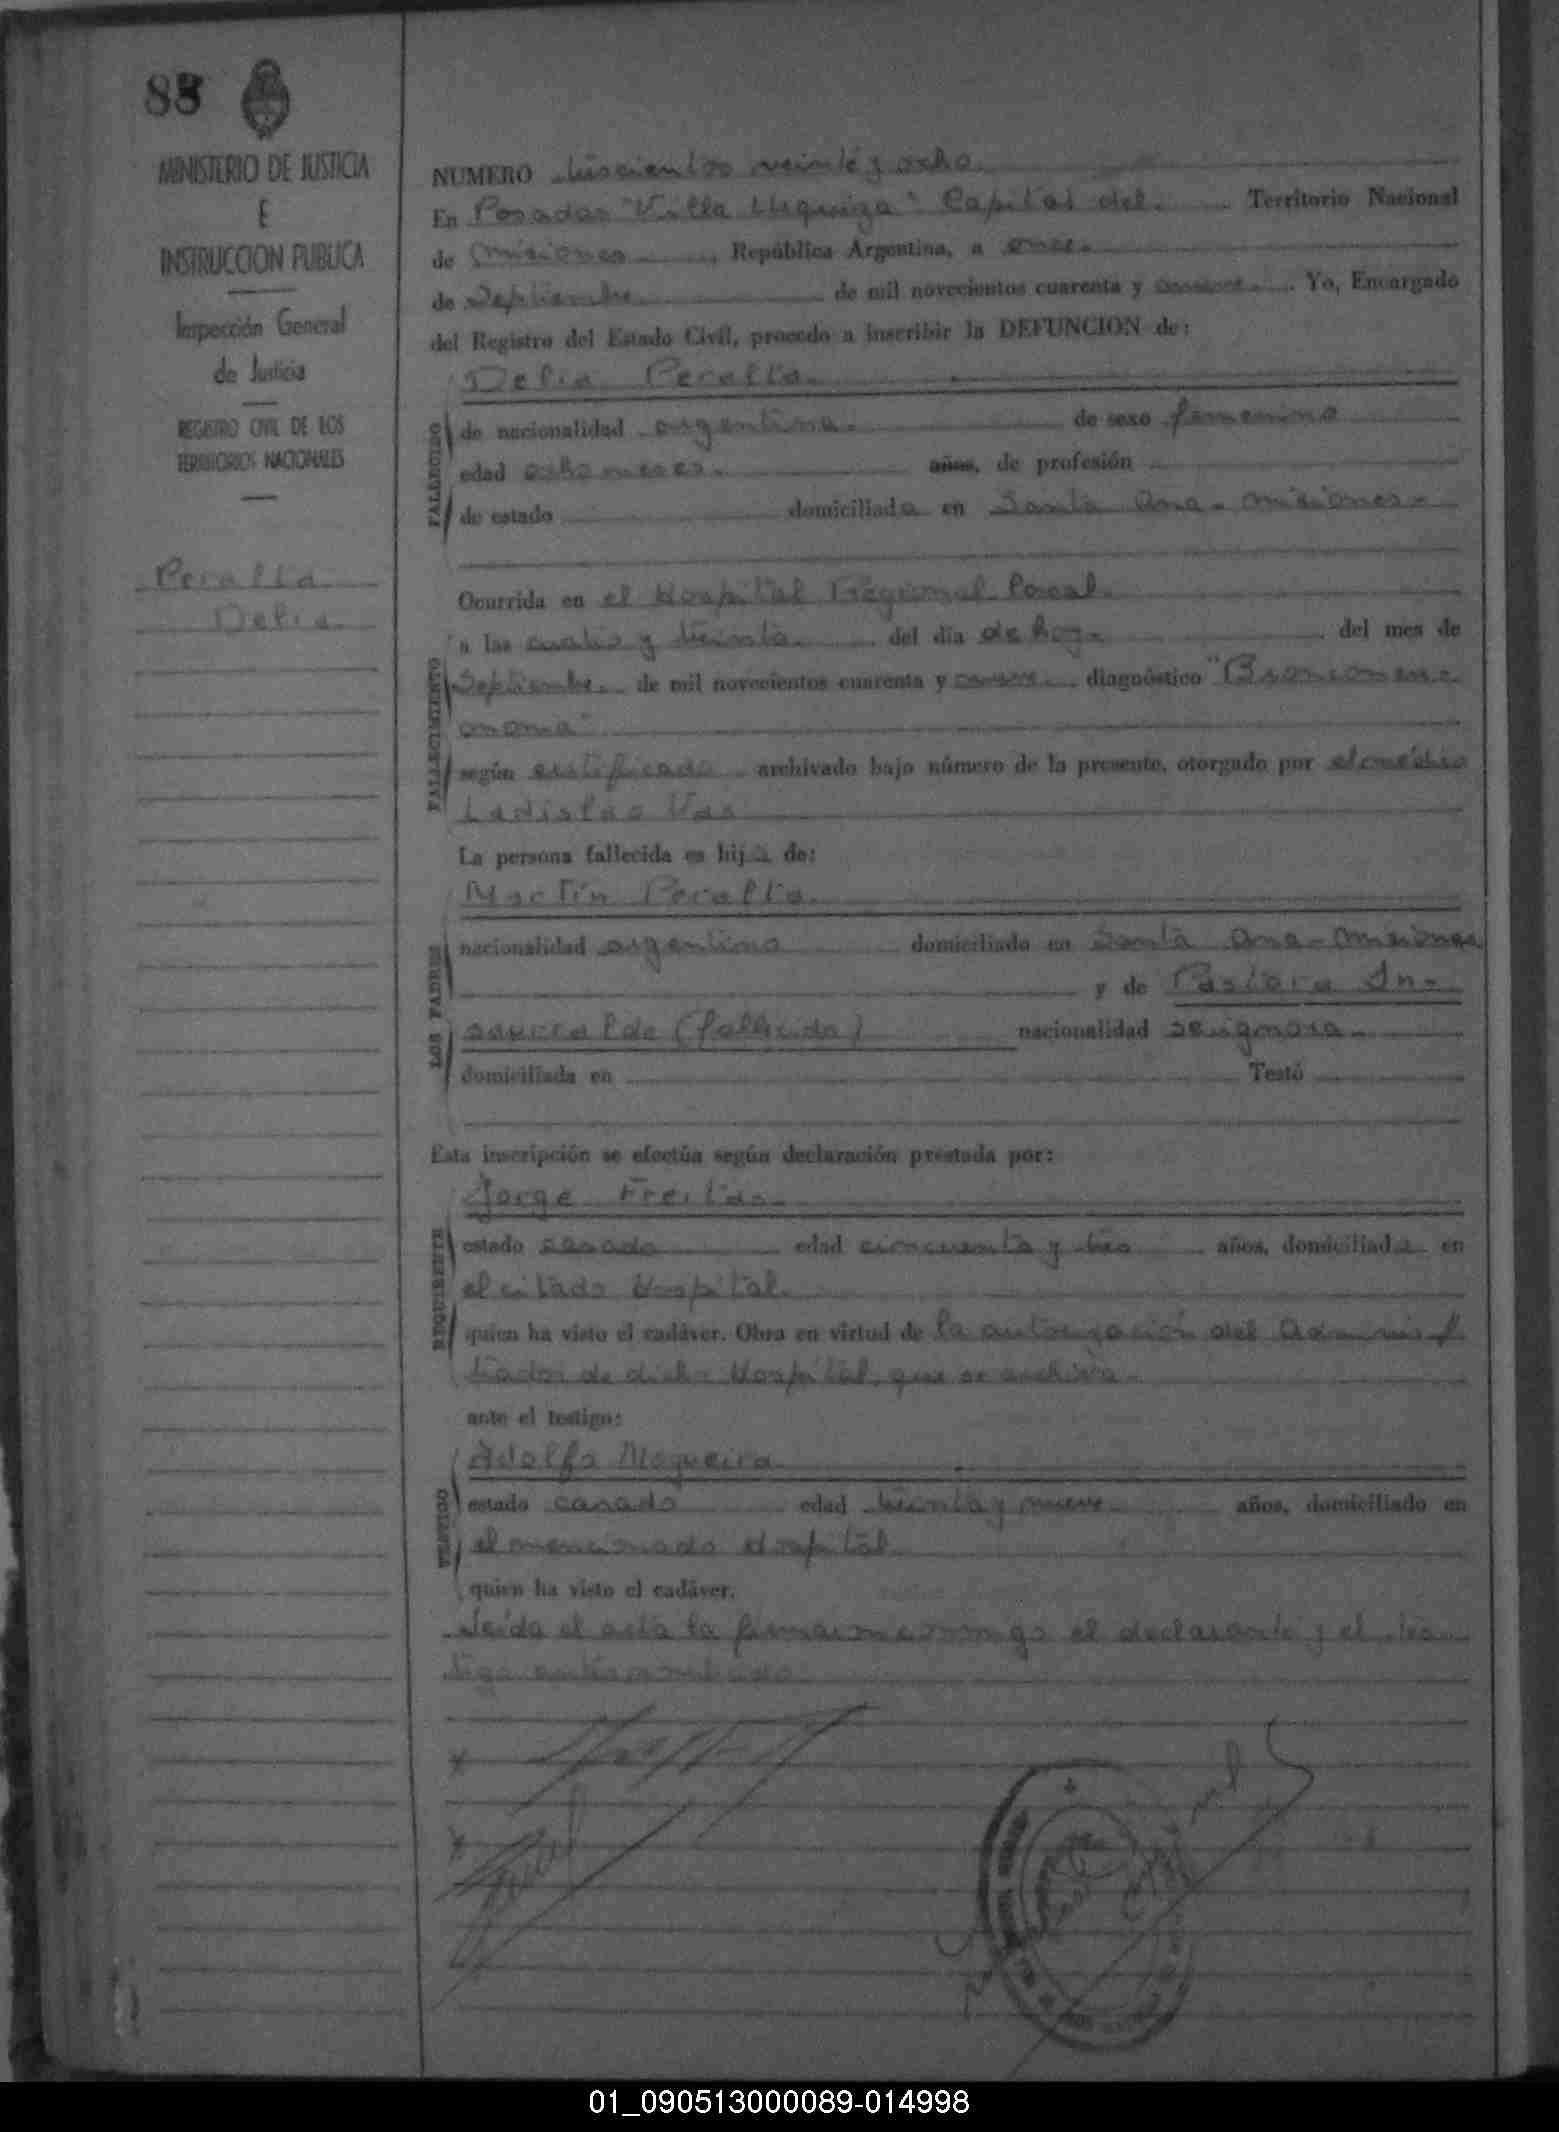 88
MINISTERIO DE JUSTICIA
E
INSTRUCCION PUBLICA
Inspección General
de Justicia
REGISTRO CIVIL DE LOS
TERRITORIOS NACIONALES
Peralta
Delia.
NUMERO trescientos veinte y ocho.
En Posadas "Villa Urquiza" Capital del. Territorio Nacional
de Misiones, República Argentina, a once.
de Septiembre. de mil novecientos cuarenta y nueve. Yo, Encargado
del Registro del Estado Civil, procedo a inscribir la DEFUNCION de:
Delia Peralta.
FALLECIDO
de nacionalidad argentina. de sexo femenino
edad ocho meses. años, de profesión
de estado domiciliada en Santa Ana - Misiones -
Ocurrida en el Hospital Regional local.
FALLECIMIENTO
a las cuatro y treinta. del día de hoy - del mes de
Septiembre. de mil novecientos cuarenta y nueve. diagnóstico "Bronconeu-
monia"
según certificado archivado bajo número de la presente, otorgado por el médico
Ladislao Vas
La persona fallecida es hija de:
LOS PADRES
Martín Peralta.
nacionalidad argentino domiciliado en Santa Ana - Misiones
y de Pastora In-
saurralde (fallecida) nacionalidad se ignora.
domiciliada en Testó
Esta inscripción se efectúa según declaración prestada por:
REQUIRENTE
Jorge Freitas -
estado casado edad cincuenta y tres años, domiciliado en
el citado Hospital.
quien ha visto el cadáver. Obra en virtud de la autorización del Adminis
trador de dicho Hospital, que se archiva -
ante el testigo:
TESTIGO
Adolfo Nogueira
estado casado edad treinta y nueve años, domiciliado en
el mencionado Hospital
quien ha visto el cadáver.
Leída el acta la firman conmigo el declarante y el tes-
tigo antes nombrado
01_090513000089-014998